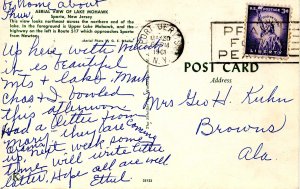 be home about
Thur.
AERIAL VIEW OF LAKE MOHAWK
Sparta, New Jersey
This view looks northward across the northern end of the
lake. In the foreground is Upper Lake Mohawk, and the
highway on the left is Route S17 which approaches Sparta
from Newton.
Up here, with
it is beautiful
mts & lakes. Mark
Chas & I bowled
this afternoon
Had a letter from
Mary, they are coming
up next week some
time. will write little
letter. Hope all are well
Ethel
PORT JERVIS
PM
1961
N.Y.
3¢
PRAY
FOR
PEACE
POST CARD
Address
Mrs Geo H. Kuhn
Browns
Ala.